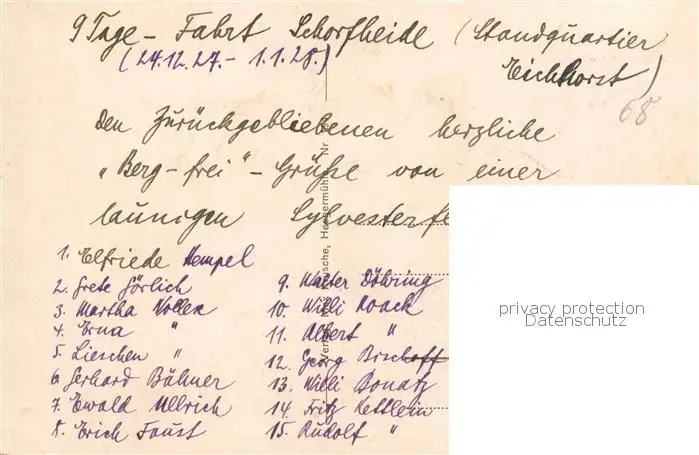 9 Tage - Fahrt Schorfheide (Standquartier
(24.12.27. - 1.1.28.) Eichhorst)
68
Den Zurückgebliebenen herzliche
„Berg-frei" - Grüße von einer
launigen Sylvesterfe
1. Elfriede Hempel
2. Grete Görlich
3. Martha
4. Erna "
5. Lieschen "
6. Gerhard Bähner
7. Ewald Ullrich
8. Erich Faust
9. Walter Döhring
10. Willi Noack
11. Albert "
12. Georg Bischoff
13. Willi Donatz
14. Fritz Kettlein
15. Rudolf "
privacy protection
Datenschutz